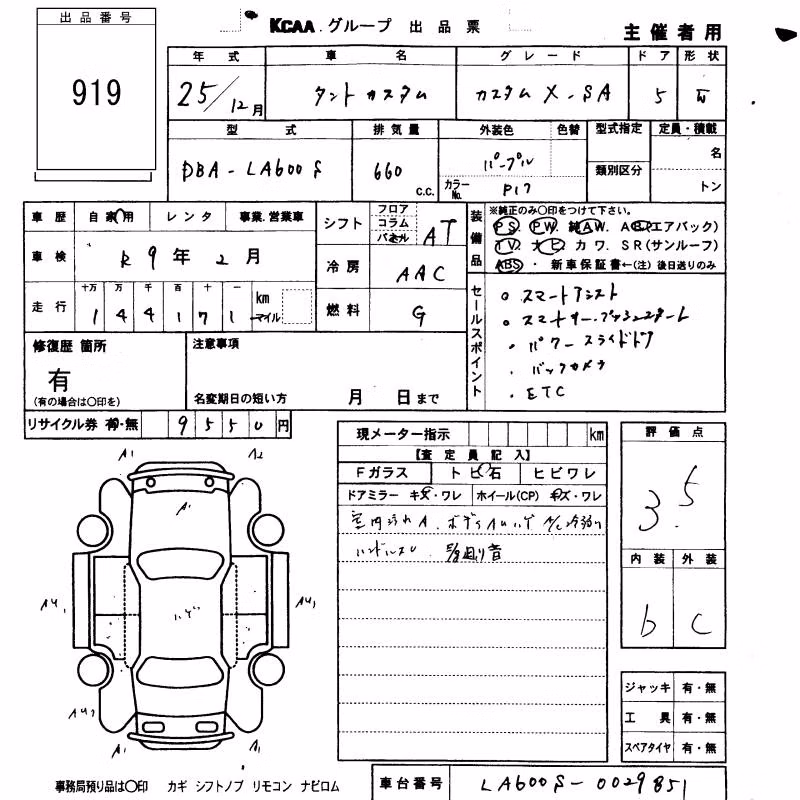 出品番号
919
KCAA グループ 出品票
主催者用
年式 車名 グレード ドア 形状
25/12月 タントカスタム カスタム X-SA 5 W
型式 排気量 外装色 色替 型式指定 定員・積載
DBA-LA600S 660 c.c. パープル 名
類別区分
カラーNo. P17 トン
車歴 自家用 レンタ 事業.営業車
シフト フロア コラム パネル AT
装備品 ※純正のみ○印をつけて下さい。
PS. PW. 純AW. AB(エアバック)
TV. ナビ カワ. SR(サンルーフ)
ABS ・ 新車保証書←(注)後日送りのみ
車検 R9年2月
冷房 AAC
走行 十万 万 千 百 十 一 km マイル
144171
燃料 G
セールスポイント
○ スマートアシスト
○ スマートキー.プッシュスタート
・ パワースライドドア
・ バックカメラ
・ ETC
修復歴 箇所
有
(有の場合は○印を)
注意事項
名変期日の短い方 月 日まで
リサイクル券 有・無 9550円
現メーター指示 km
【査定員記入】
Fガラス トビ石 ヒビワレ
ドアミラー キズ・ワレ ホイール(CP) キズ・ワレ
室内汚れA. ボディAUハゲ A/C冷弱り
評価点
3.5
内装 外装
b C
A1 A2
A1
AU1 ハゲ AU1
AU1
A1 A1
ジャッキ 有・無
工具 有・無
スペアタイヤ 有・無
事務局預り品は○印 カギ シフトノブ リモコン ナビロム
車台番号 LA600S-0029851